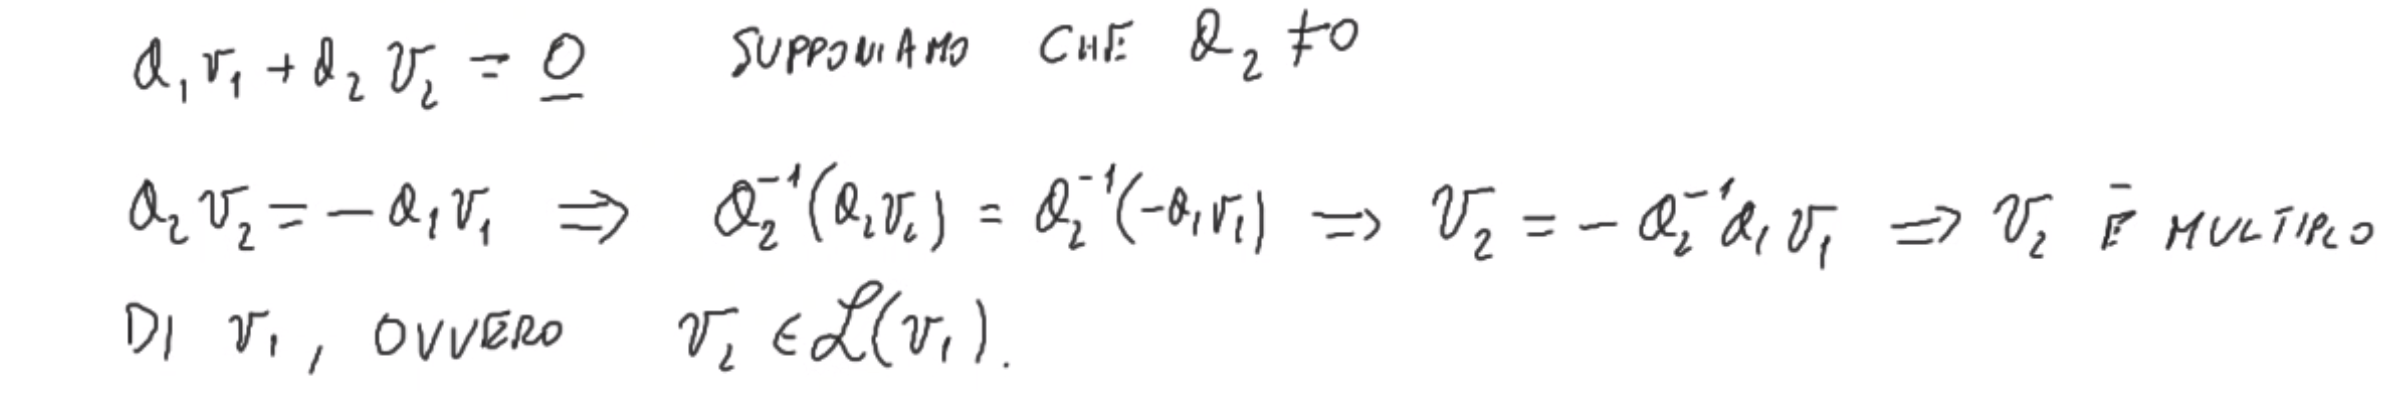 a₁v₁ + a₂v₂ = 0 SUPPONIAMO CHE a₂ ≠ 0
a₂v₂ = -a₁v₁ ⇒ a₂⁻¹(a₂v₂) = a₂⁻¹(-a₁v₁) ⇒ v₂ = -a₂⁻¹a₁v₁ ⇒ v₂ È MULTIPLO
DI v₁, OVVERO v₂ ∈ ℒ(v₁).